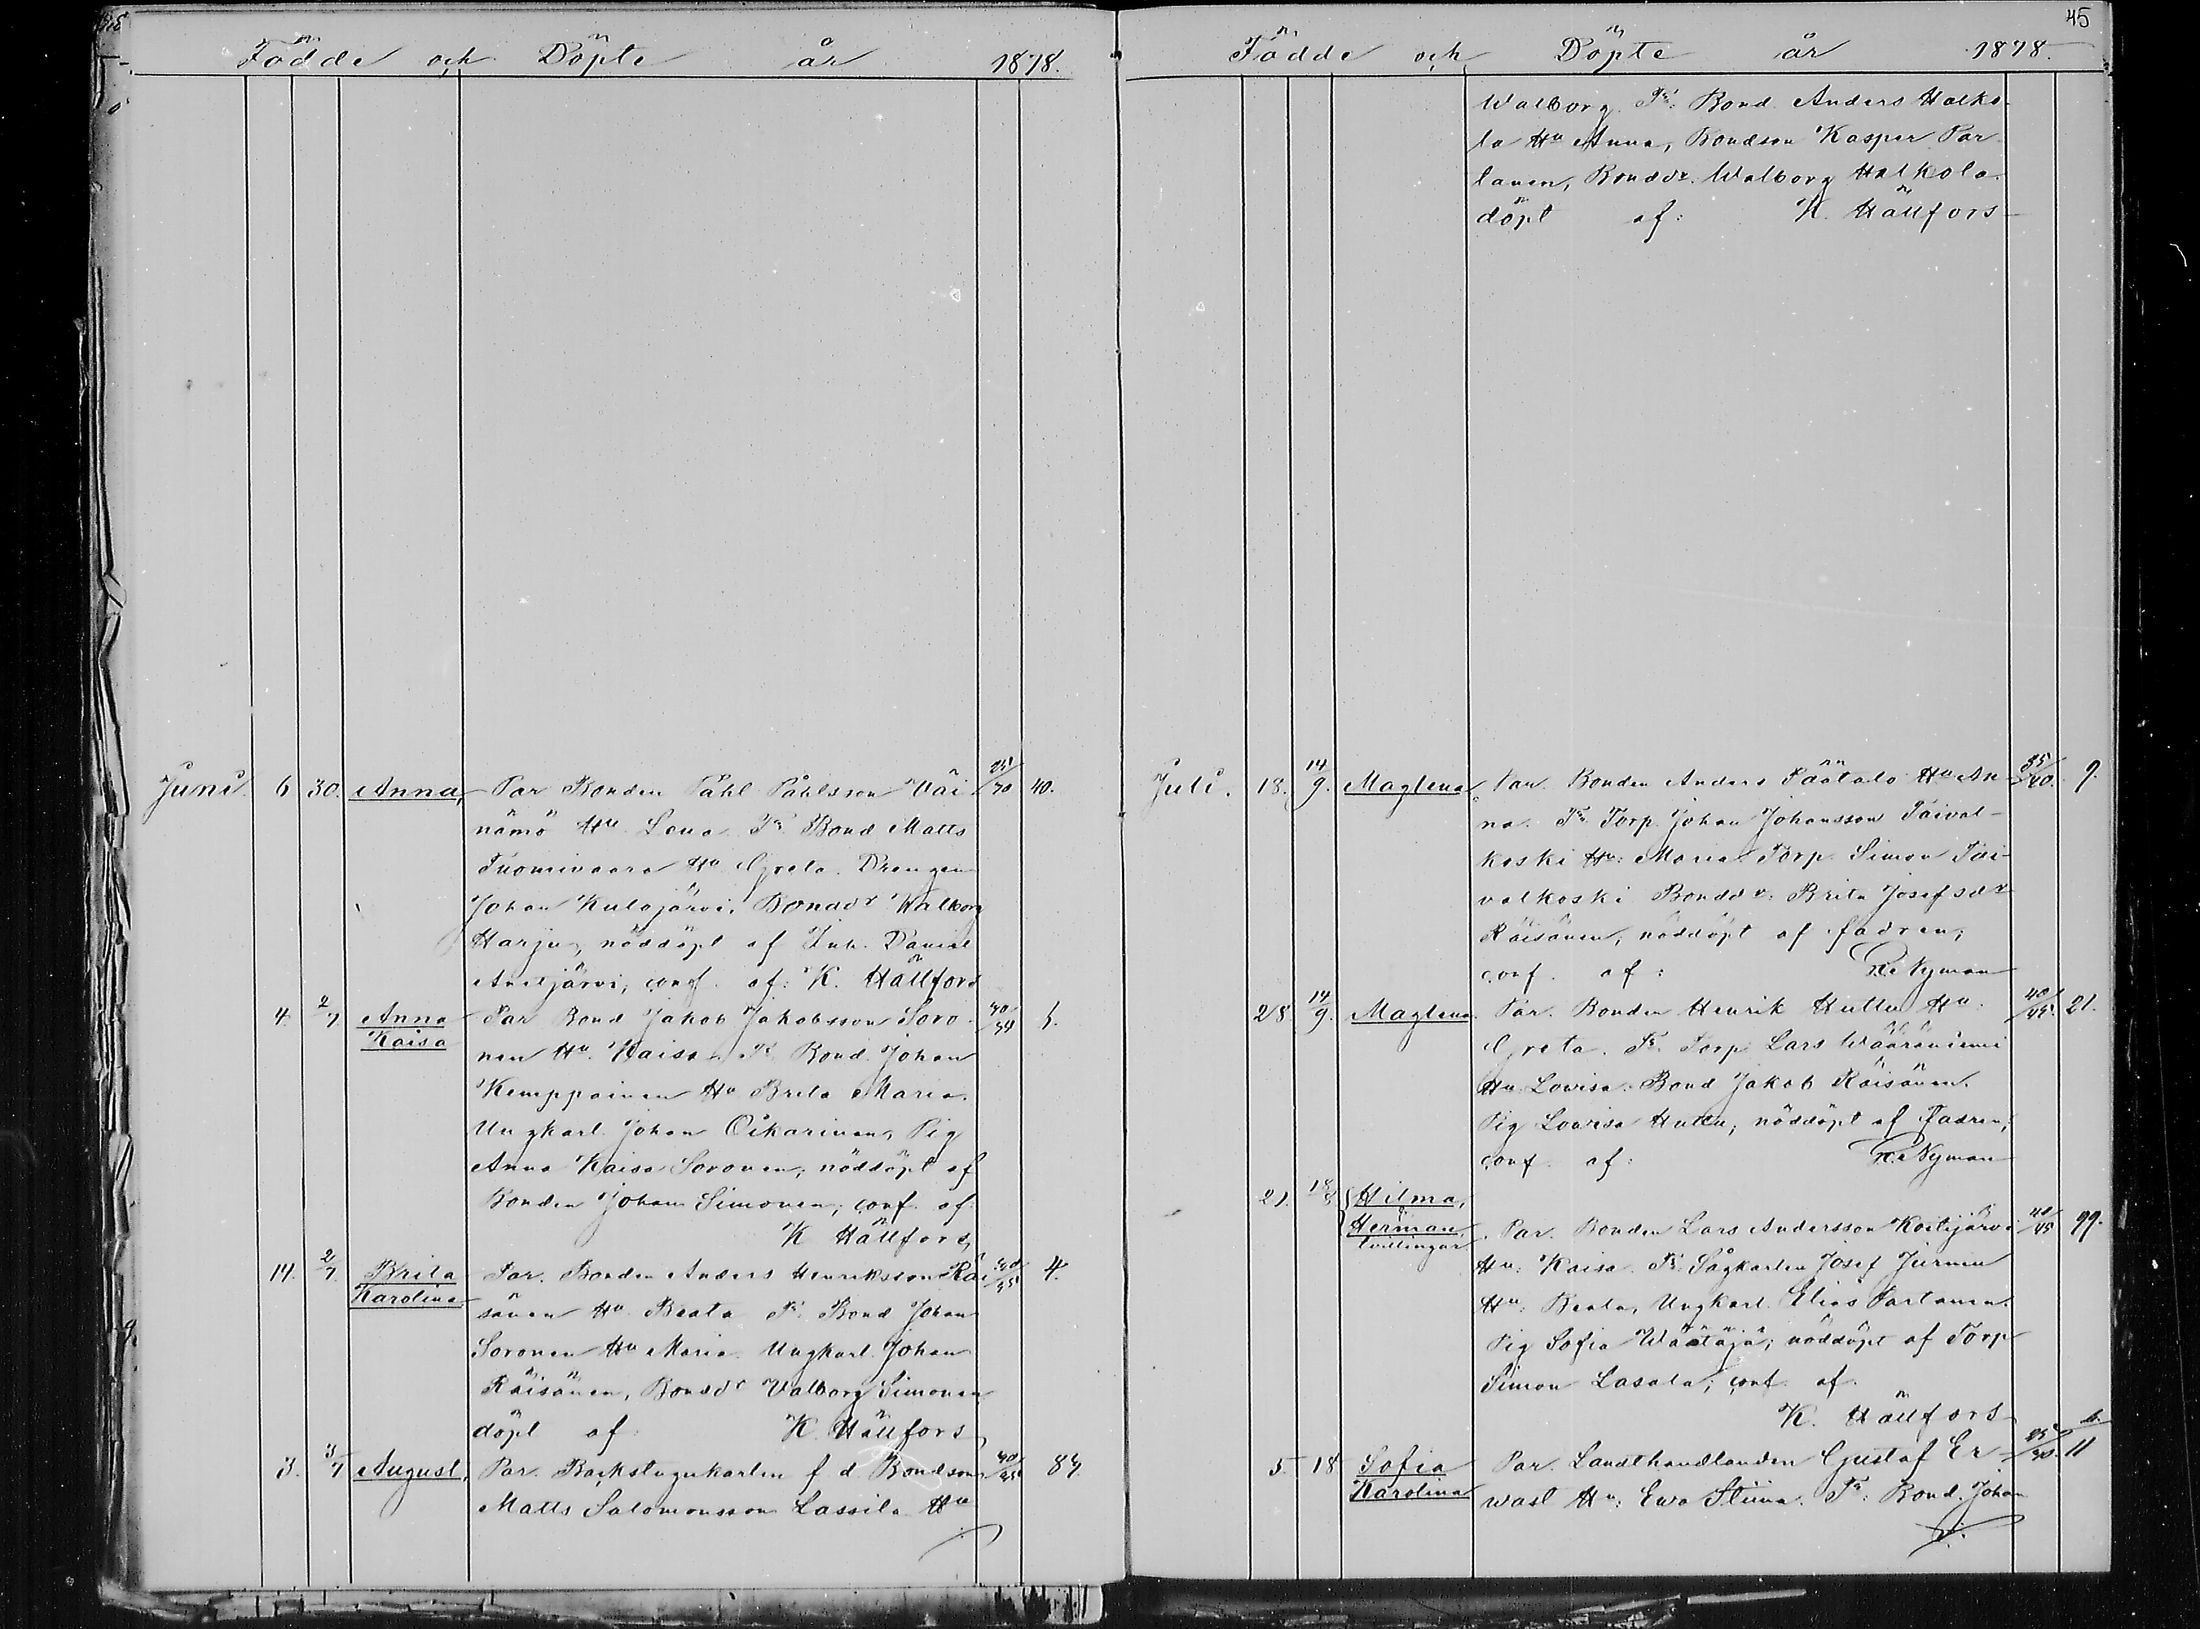 Födde och Döpte år 1878.
Juni 6 30. Anna, Par Bonden Påhl Påhlsson Väi- 25/30 40.
nämö Hu Lena. Fr. Bond Matts
Tuomivaara Hu Greta. Drengen
Johan Kulojärvi, Bonddr Walborg
Harju, nöddöpt af Inh. Daniel
järvi, conf. af: K. Hällfors
4. 2/7 Anna Par Bond Jakob Jakobsson Soro- 6.
Kaisa nen Hu. Kaisa. Fr. Bond. Johan
Kemppainen Hu Brita Maria.
Ungkarl Johan Oikarinen, Pig
Anna Kaisa Soronen, nöddöpt af
Bonden Johan Simonen; conf. af
K Hällfors
14. 2/7. Brita Par. Bonden Anders Henriksson Räi- 4.
Karolina sänen Hu Beata Fr. Bond Johan
Soronen Hu Maria. Ungkarl. Johan
Räisänen, Bonddr Valborg Simonen
döpt af: K. Hällfors
3. 3/7 August, Par. Backstugukarlen f d. Bondson 40/45 84.
Matts Salomonsson Lassila Hu
45
Födde och Döpte år 1878.
Walborg. Fr: Bond Anders Halko-
la Hu Anna, Bondson Kasper Par-
tanen, Bonddr. Walborg Halkola.
döpt af: K. Hällfors
Juli. 18. 14/9. Maglena Par. Bonden Anders Päätalo Hu An- 35/40. 9.
na. Fr. Torp. Johan Johansson Taival-
koski Hu: Maria Torp. Simon Tai-
valkoski Bonddr. Brita Josefsdr
Räisänen, nöddöpt af fadren;
conf. af: Nyman
28 14/9. Maglena. Par. Bonden Henrik Huttu Hu. 40/45. 21.
Greta. Fr. Torp Lars Wääräniemi
Hu Lovisa. Bond Jakob Räisänen.
Pig Lovisa Huttu, nöddöpt af Fadren;
conf. af: Nyman
21. 18/8 Hilma,
Herman, Par. Bonden Lars Andersson Kortejärvi 40/45 99.
tvillingar
Hu: Kaisa. Fr. Sågkarlen Josef Jurmu
Hu: Beata, Ungkarl. Elias Partanen.
Pig Sofia Wäätäjä; nöddöpt af Torp
Simon Lasala; conf. af.
K. Hällfors
5. 18 Sofia Par. Landthandlanden Gustaf Er- 11
Karolina wast Hu: Ewa Stiina. Fr: Bond. Johan